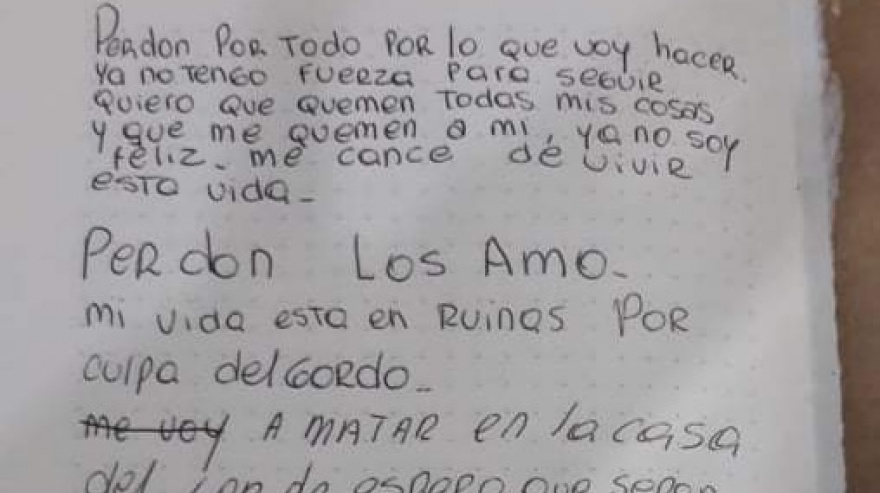 Perdon Por Todo Por lo que voy hacer.
ya no Tengo Fuerza Para seguir
Quiero Que Quemen Todas mis cosas
y que me quemen a mi, ya no soy
Feliz. me cance de vivir
esta vida.
Perdon Los Amo.
mi vida esta en Ruinas Por
culpa del Gordo.
me voy A MATAR en la casa
del espero que sepan